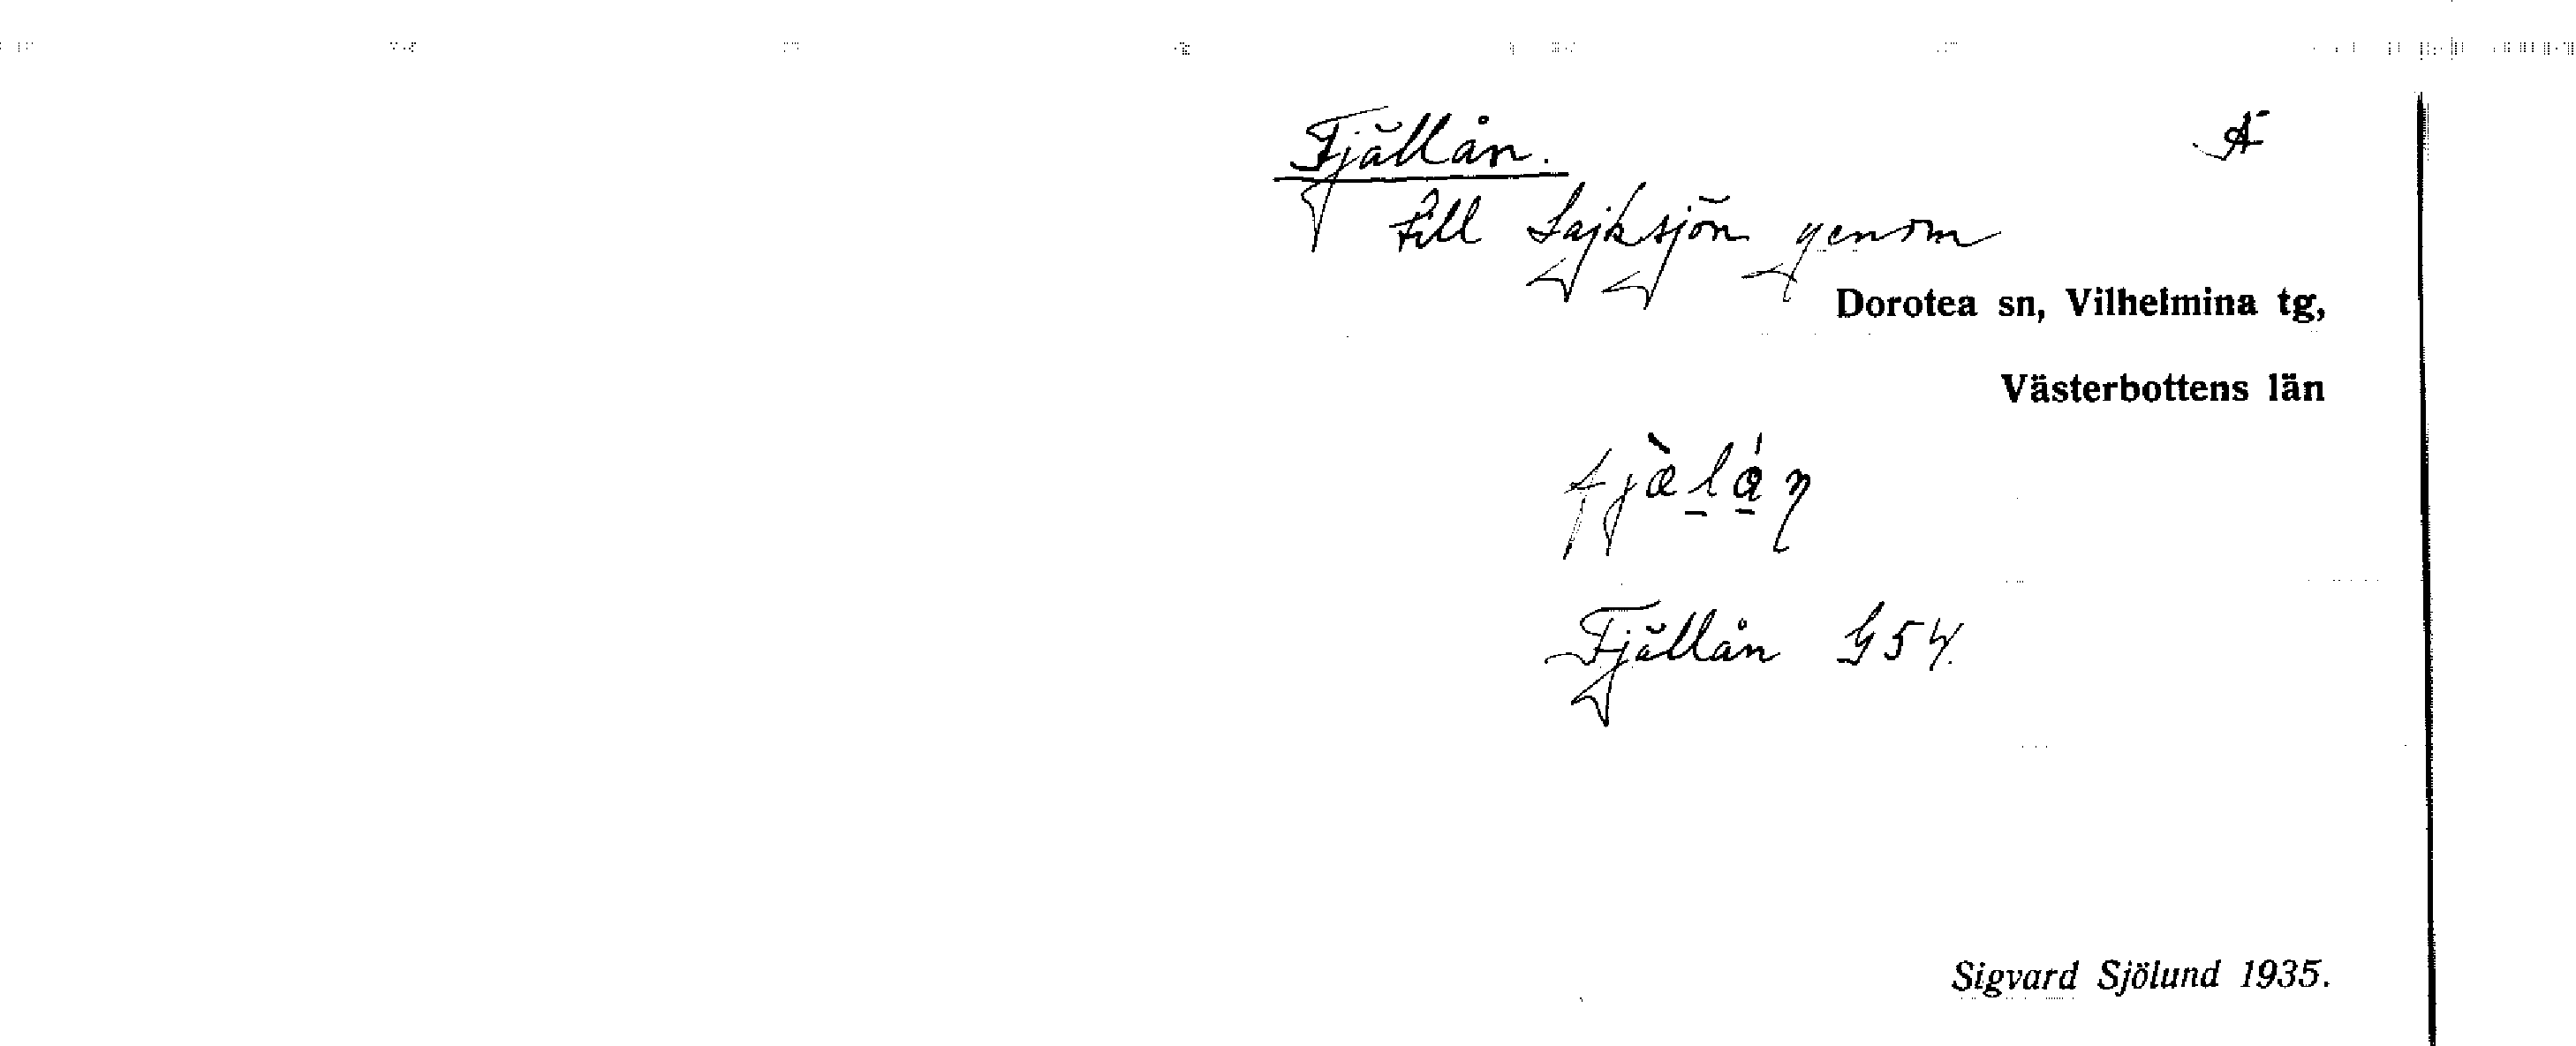 Fjällån. Å
till Lajksjön genom
Dorotea sn, Vilhelmina tg,
Västerbottens län
Fjällån G54.
Sigvard Sjölund 1935.